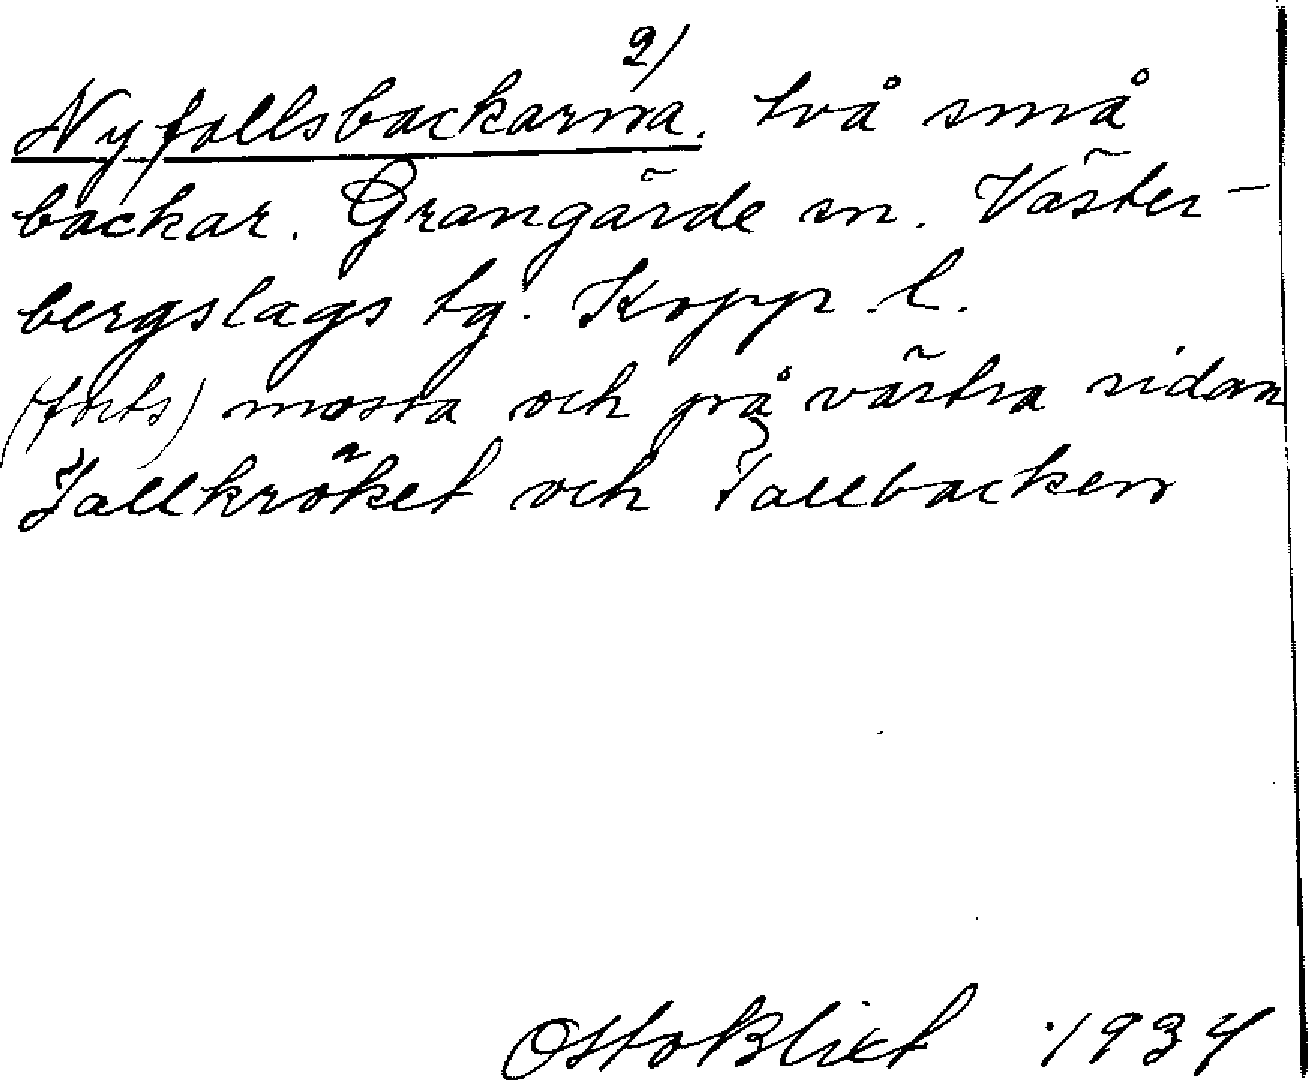 2)
Nyfallsbackarna. två små
backar. Grangärde sn. Väster-
bergslags tg. Kopp. l.
(forts) mossa och på västra sidan
Tallkröket och Tallbacken
Otto Blixt 1934